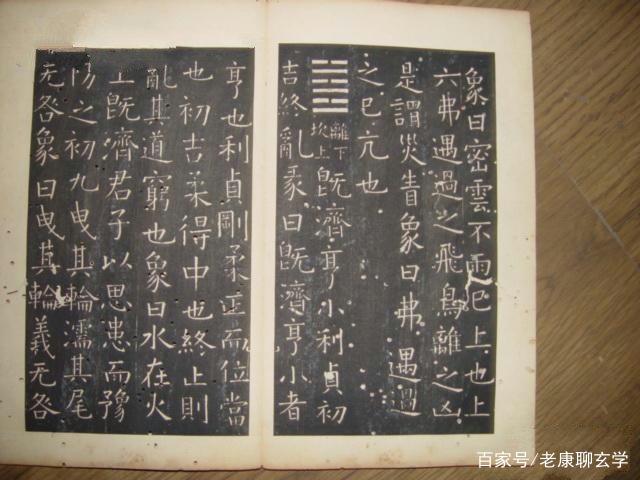 象曰密雲不雨已上也上
六弗遇過之飛鳥離之凶
是謂災眚象曰弗遇過
之已亢也
䷾離下坎上既濟亨小利貞初
吉終亂彖曰既濟亨小者
亨也利貞剛柔正而位當
也初吉柔得中也終止則
亂其道窮也象曰水在火
上既濟君子以思患而豫
防之初九曳其輪濡其尾
无咎象曰曳其輪義无咎
百家号/老康聊玄学